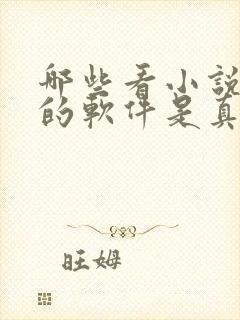 那些看小說
的軟件是真
旺姆